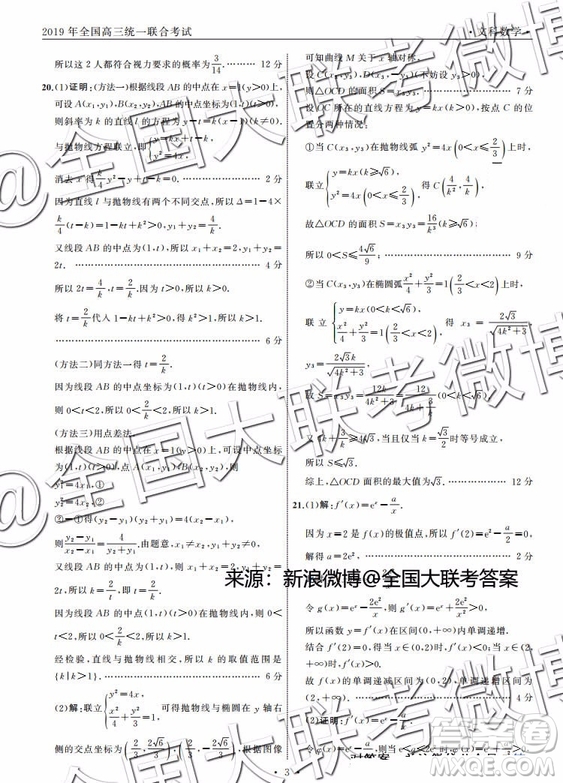 2019 年全国高三统一联合考试
·文科数学·
所以这 2 人都符合视力要求的概率为 3/14. ………… 12 分
20.(1)证明:(方法一)根据线段 AB 的中点在 x=1(y>0)上,
可设 A(x₁,y₁),B(x₂,y₂),AB 的中点坐标为(1,t)(t>0),
则斜率为 k 的直线 l 的方程为 y−t=k(x−1)(k≠0).
与抛物线方程联立,即 {y=kx+t−k, y²=4x,
消去 x 得 k/4 y²−y+t−k=0. ………… 2 分
因为直线 l 与抛物线有两个不同交点,所以 Δ=1−4×
k/4 (t−k)=1−kt+k²>0,y₁+y₂=4/k.
又线段 AB 的中点为(1,t),所以 x₁+x₂=2,y₁+y₂=
2t. ………… 4 分
所以 2t=4/k,t=2/k.因为 t>0,所以 k>0.
将 t=2/k 代入 1−kt+k²>0,得 k²>1,所以 k>1.
………… 6 分
(方法二)同方法一得 t=2/k.
因为线段 AB 的中点坐标为(1,t)(t>0)在抛物线内,
所以 0<t<2,所以 0<2/k<2,所以 k>1. ………… 6 分
(方法三)用点差法.
根据线段 AB 的中点在 x=1(y>0)上,可设中点坐标
为(1,t)(t>0),点 A(x₁,y₁),B(x₂,y₂),则
{y₁²=4x₁ ①
y₂²=4x₂ ②
②−①得(y₂−y₁)(y₂+y₁)=4(x₂−x₁),
则 (y₂−y₁)/(x₂−x₁)=4/(y₂+y₁).由题意,x₁≠x₂,y₁≠−y₂,
所以 k=2/t. ………… 4 分
因为线段 AB 的中点为(1,t)(t>0)在抛物线内,所以 0
<t<2,所以 0<2/k<2,所以 k>1.
经检验,直线与抛物线相交,所以 k 的取值范围是
{k|k>1}. ………… 6 分
(2)解:联立 {y²=4x, x²/4+y²/3=1, 得两图像在 y 轴右
侧的交点坐标为 (2/3,2√6/3),(2/3,−2√6/3),根据图像
可知曲线 M 关于 x 轴对称.
则△OCD 的面积 S=x₃y₃. ………… 7 分
设 OC 所在的直线方程为 y=kx(k>0),按点 C 的位
置分两种情况:
①当 C(x₃,y₃)在抛物线弧 y²=4x(0<x≤2/3)上时,
联立 {y=kx(k≥√6), y²=4x(0<x≤2/3), 得 C(4/k²,4/k),
故△OCD 的面积 S=x₃y₃=16/k³(k≥√6),
所以 0<S≤4√6/9; ………… 9 分
②当 C(x₃,y₃)在椭圆弧 x²/4+y²/3=1(2/3<x<2)上时,
联立 {y=kx(0<k<√6), x²/4+y²/3=1(2/3<x<2), 得 x₃=2√3/√(4k²+3),
y₃=2√3k/√(4k²+3),
故 S=x₃y₃=12k/(4k²+3)=12/(4k+3/k),
又 4k+3/k≥4√3,当且仅当 k=√3/2 时等号成立,
所以 S≤√3.
综上,△OCD 面积的最大值为√3. ………… 12 分
21.(1)解:f′(x)=eˣ−a/x.
因为 x=2 是 f(x)的极值点,所以 f′(2)=e²−a/2=0,
解得 a=2e², ………… 2 分
令 g(x)=eˣ−2e²/x,则 g′(x)=eˣ+2e²/x²>0,
所以函数 y=f′(x)在区间(0,+∞)内单调递增.
结合 f′(2)=0,得当 x∈(0,2)时,f′(x)<0;当 x∈(2,
+∞)时,f′(x)>0.
因此 f(x)的单调递减区间为(0,2),单调递增区间为
(2,+∞). ………… 4 分
来源：新浪微博@全国大联考答案
@全国大联考微博
· 3 ·